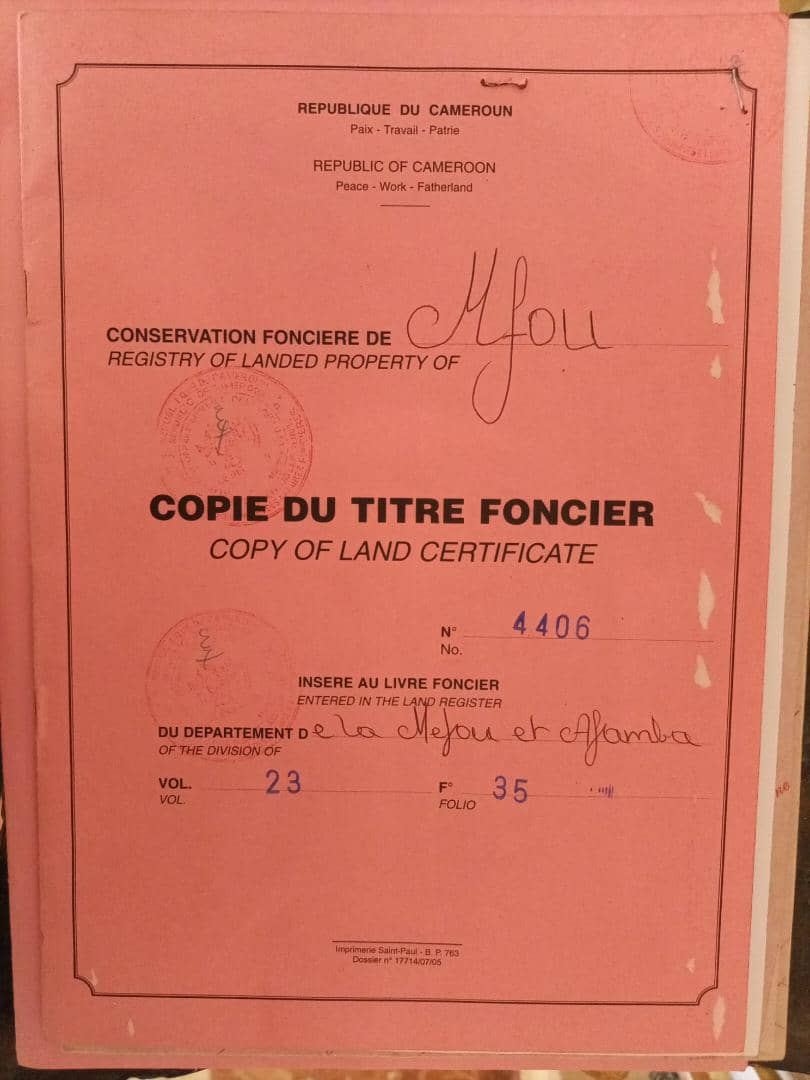 REPUBLIQUE DU CAMEROUN
Paix - Travail - Patrie
REPUBLIC OF CAMEROON
Peace - Work - Fatherland
CONSERVATION FONCIERE DE Mfou
REGISTRY OF LANDED PROPERTY OF
COPIE DU TITRE FONCIER
COPY OF LAND CERTIFICATE
N° 4406
No.
INSERE AU LIVRE FONCIER
ENTERED IN THE LAND REGISTER
DU DEPARTEMENT De la Mefou et Afamba
OF THE DIVISION OF
VOL. 23 F° 35
VOL. FOLIO
Imprimerie Saint-Paul - B. P. 763
Dossier n° 17714/07/05